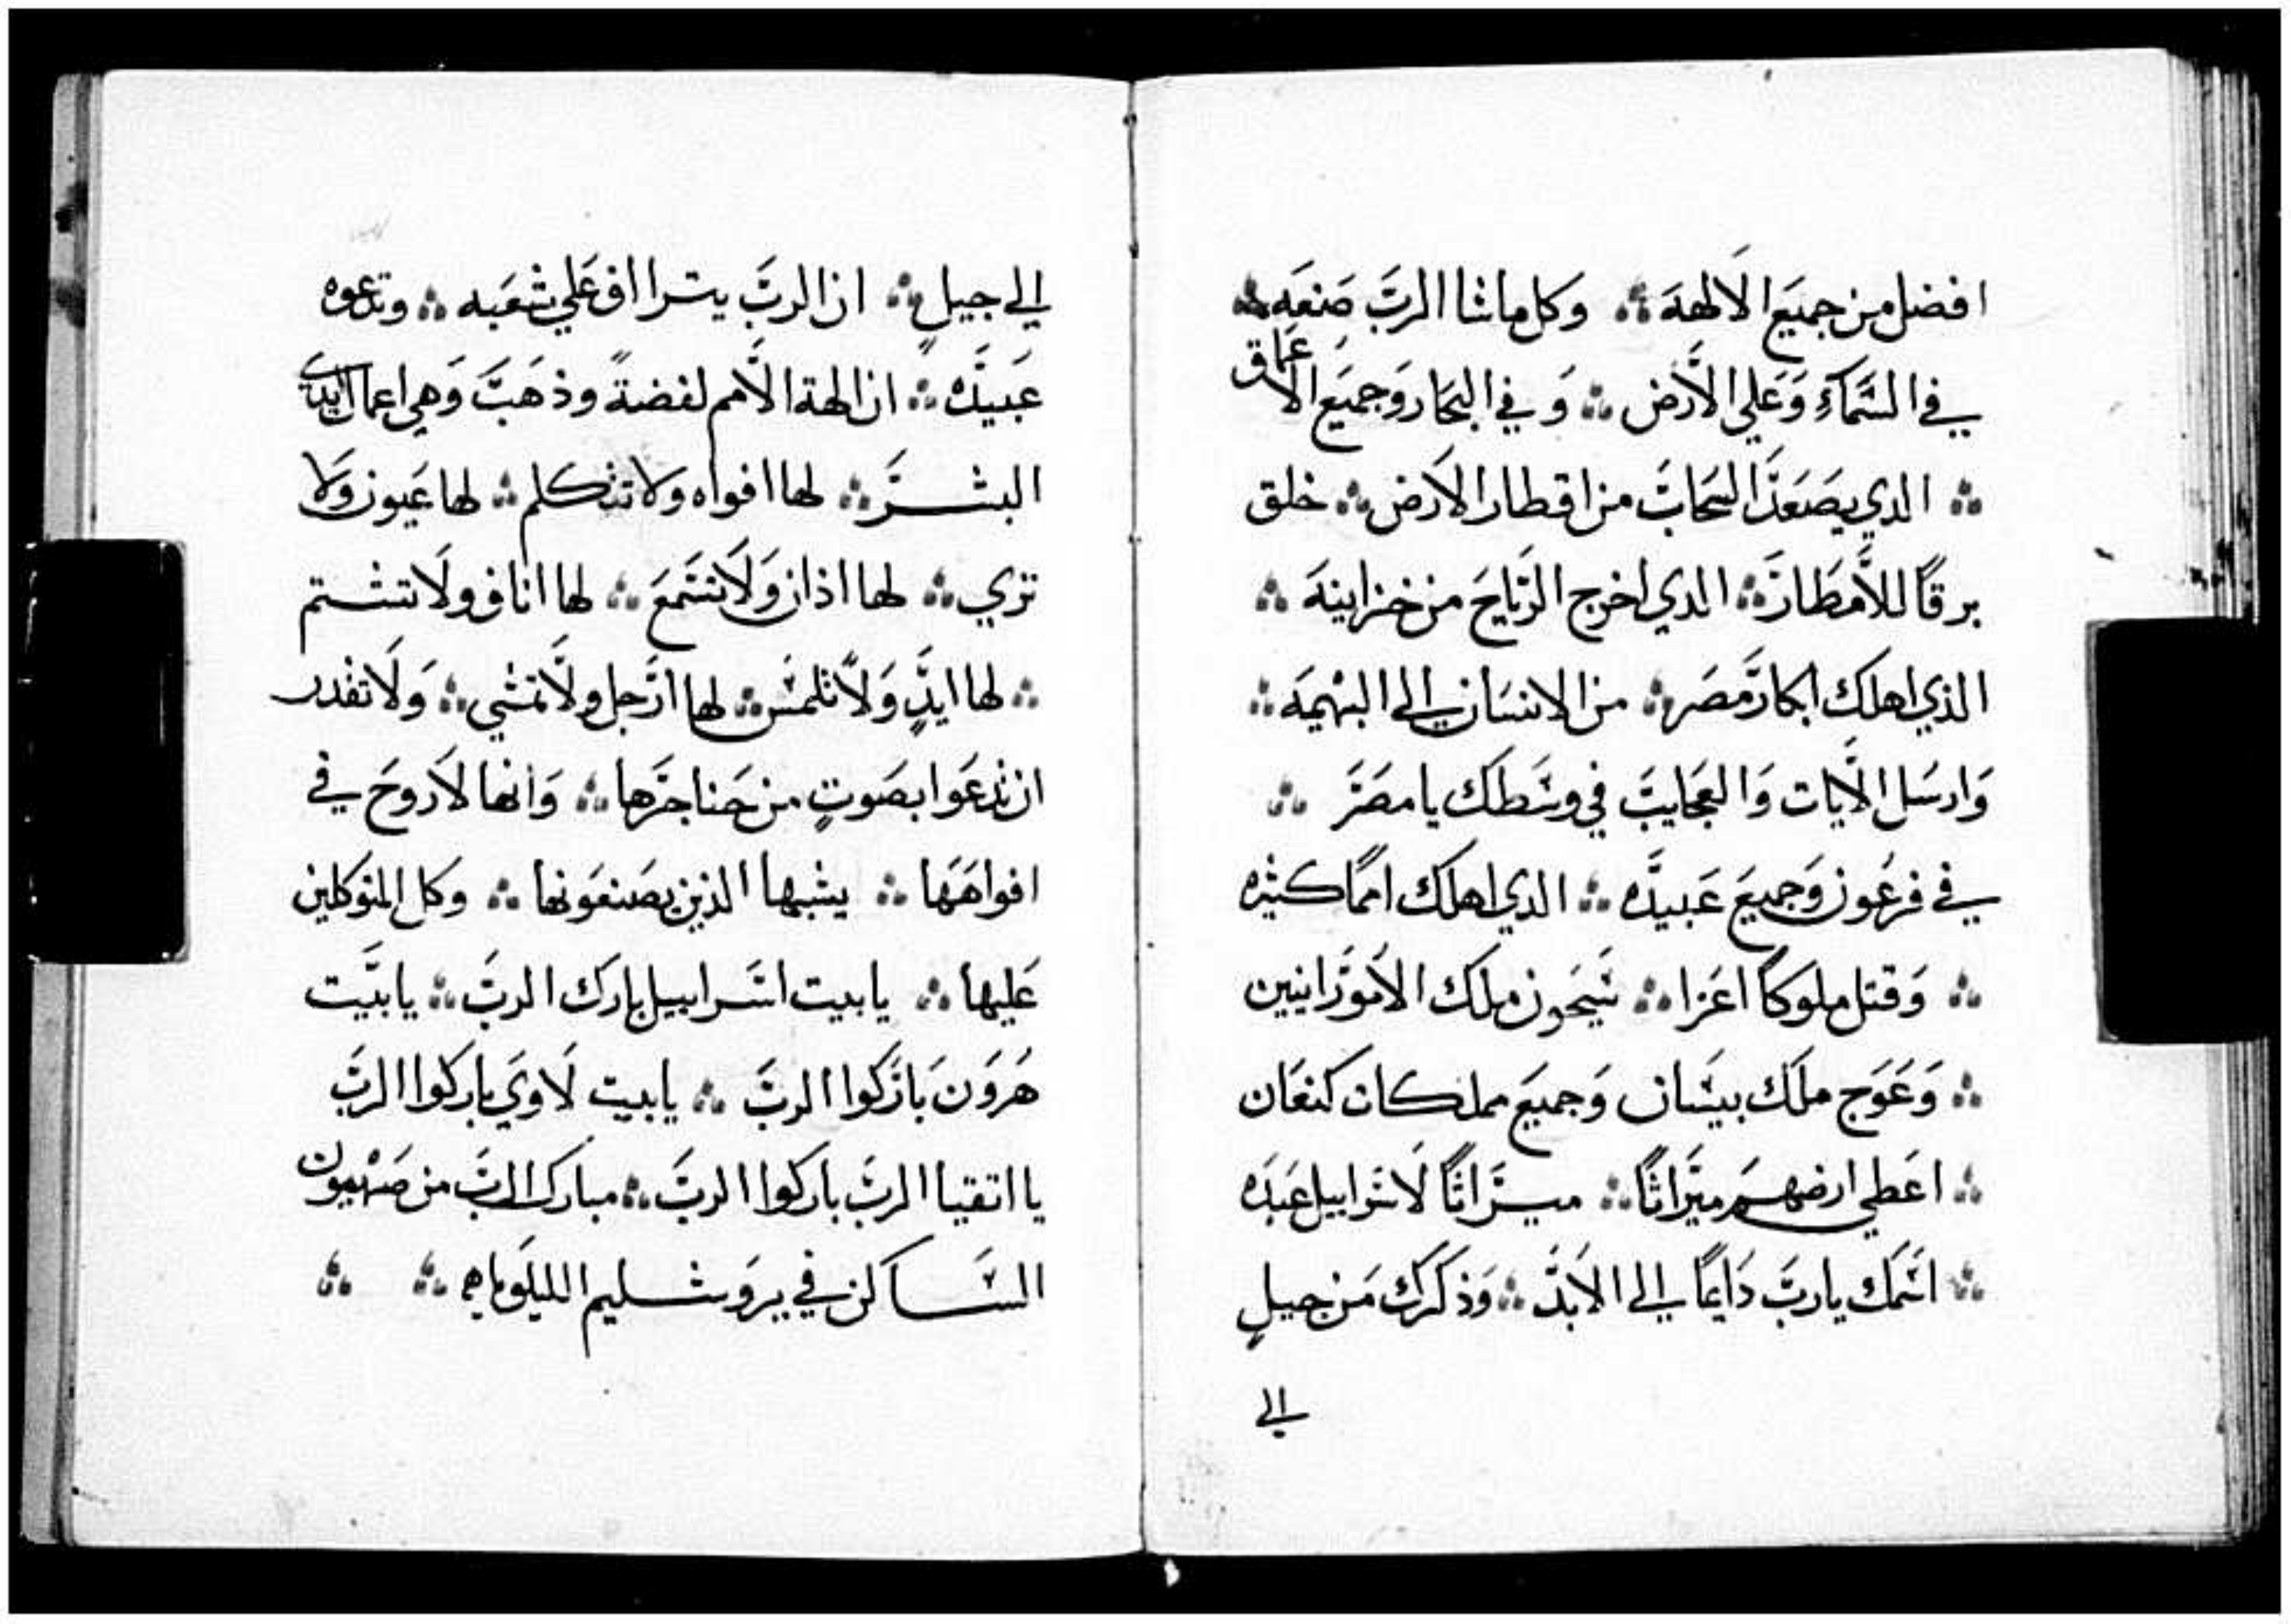 افضل من جميَع الَالهة ؞ وكل ماشا الربَّ صَنعَه ؞
في السَّمَاءِ وَعَلي الَّارض ؞ وَ في البحَار وَجميَع الاعماق
؞ الدي يصَعَد السَحَابَ من اقطار الاَرض ؞ خلق
برقًا للاَّمطَار ؞ الدي اخرج الريَاحَ من خزاينهَ ؞
الذي اهلك ابكار مصَر ؞ من الانسَان الي البهيمَه ؞
وَارسَل الاَّيات وَالعجَايبَ في وسَطك يا مصَرَ ؞
في فرعُون وَجميعَ عَبيدَه ؞ الدي اهلك اممًا كثيره
؞ وَقتل ملوكاً اعَزا ؞ سَيحَون ملَك الاموَرانيين
؞ وَعَوَج ملَك بيسَان وَجميَع مملكات كنعَان
؞ اعَطي ارضهمَ ميَراثًا ؞ ميَراثًا لَاسَراييل عبَدَه
؞ اسَمَك ياربَّ دَايمًا الي الاَبدَ ؞ وَذكَرك مَن جيلٍ
الي
الي جيلٍ ؞ ان الربَّ يتراااف عَلي شعَبه ؞ وتدعوه
عَبيدَه ؞ ان الهة الاَّمم لفضةً وذهَبَ وَهي اعمال ايدي
البشَر ؞ لها افواه ولا تتكلم ؞ لها عَيون وَلا
تري ؞ لها اذان وَلَا تسَمعَ ؞ لها اناف ولَا تشتم
؞ لها ايدٍ وَلاَ تلمسَ ؞ لها ارَجل ولَا تمشي ؞ وَلَا تقدر
ان تدعَوا بصَوتٍ من حَناجرَها ؞ وَانها لَا روحَ في
افواهَهَا ؞ يشبها الذين يصَنعَونها ؞ وكل المتوكلين
عَليها ؞ يابيت اسَراييل بارَك الربَّ ؞ يابيَت
هَروَن بَارَكوا الربَّ ؞ يابيت لَاوَي باركوا الربَّ
يا اتقيا الربَّ باركوا الربَّ ؞ مبارك الربَّ من صَهيون
السَاكن في يروَشليم الليلَوياه ؞ ؞